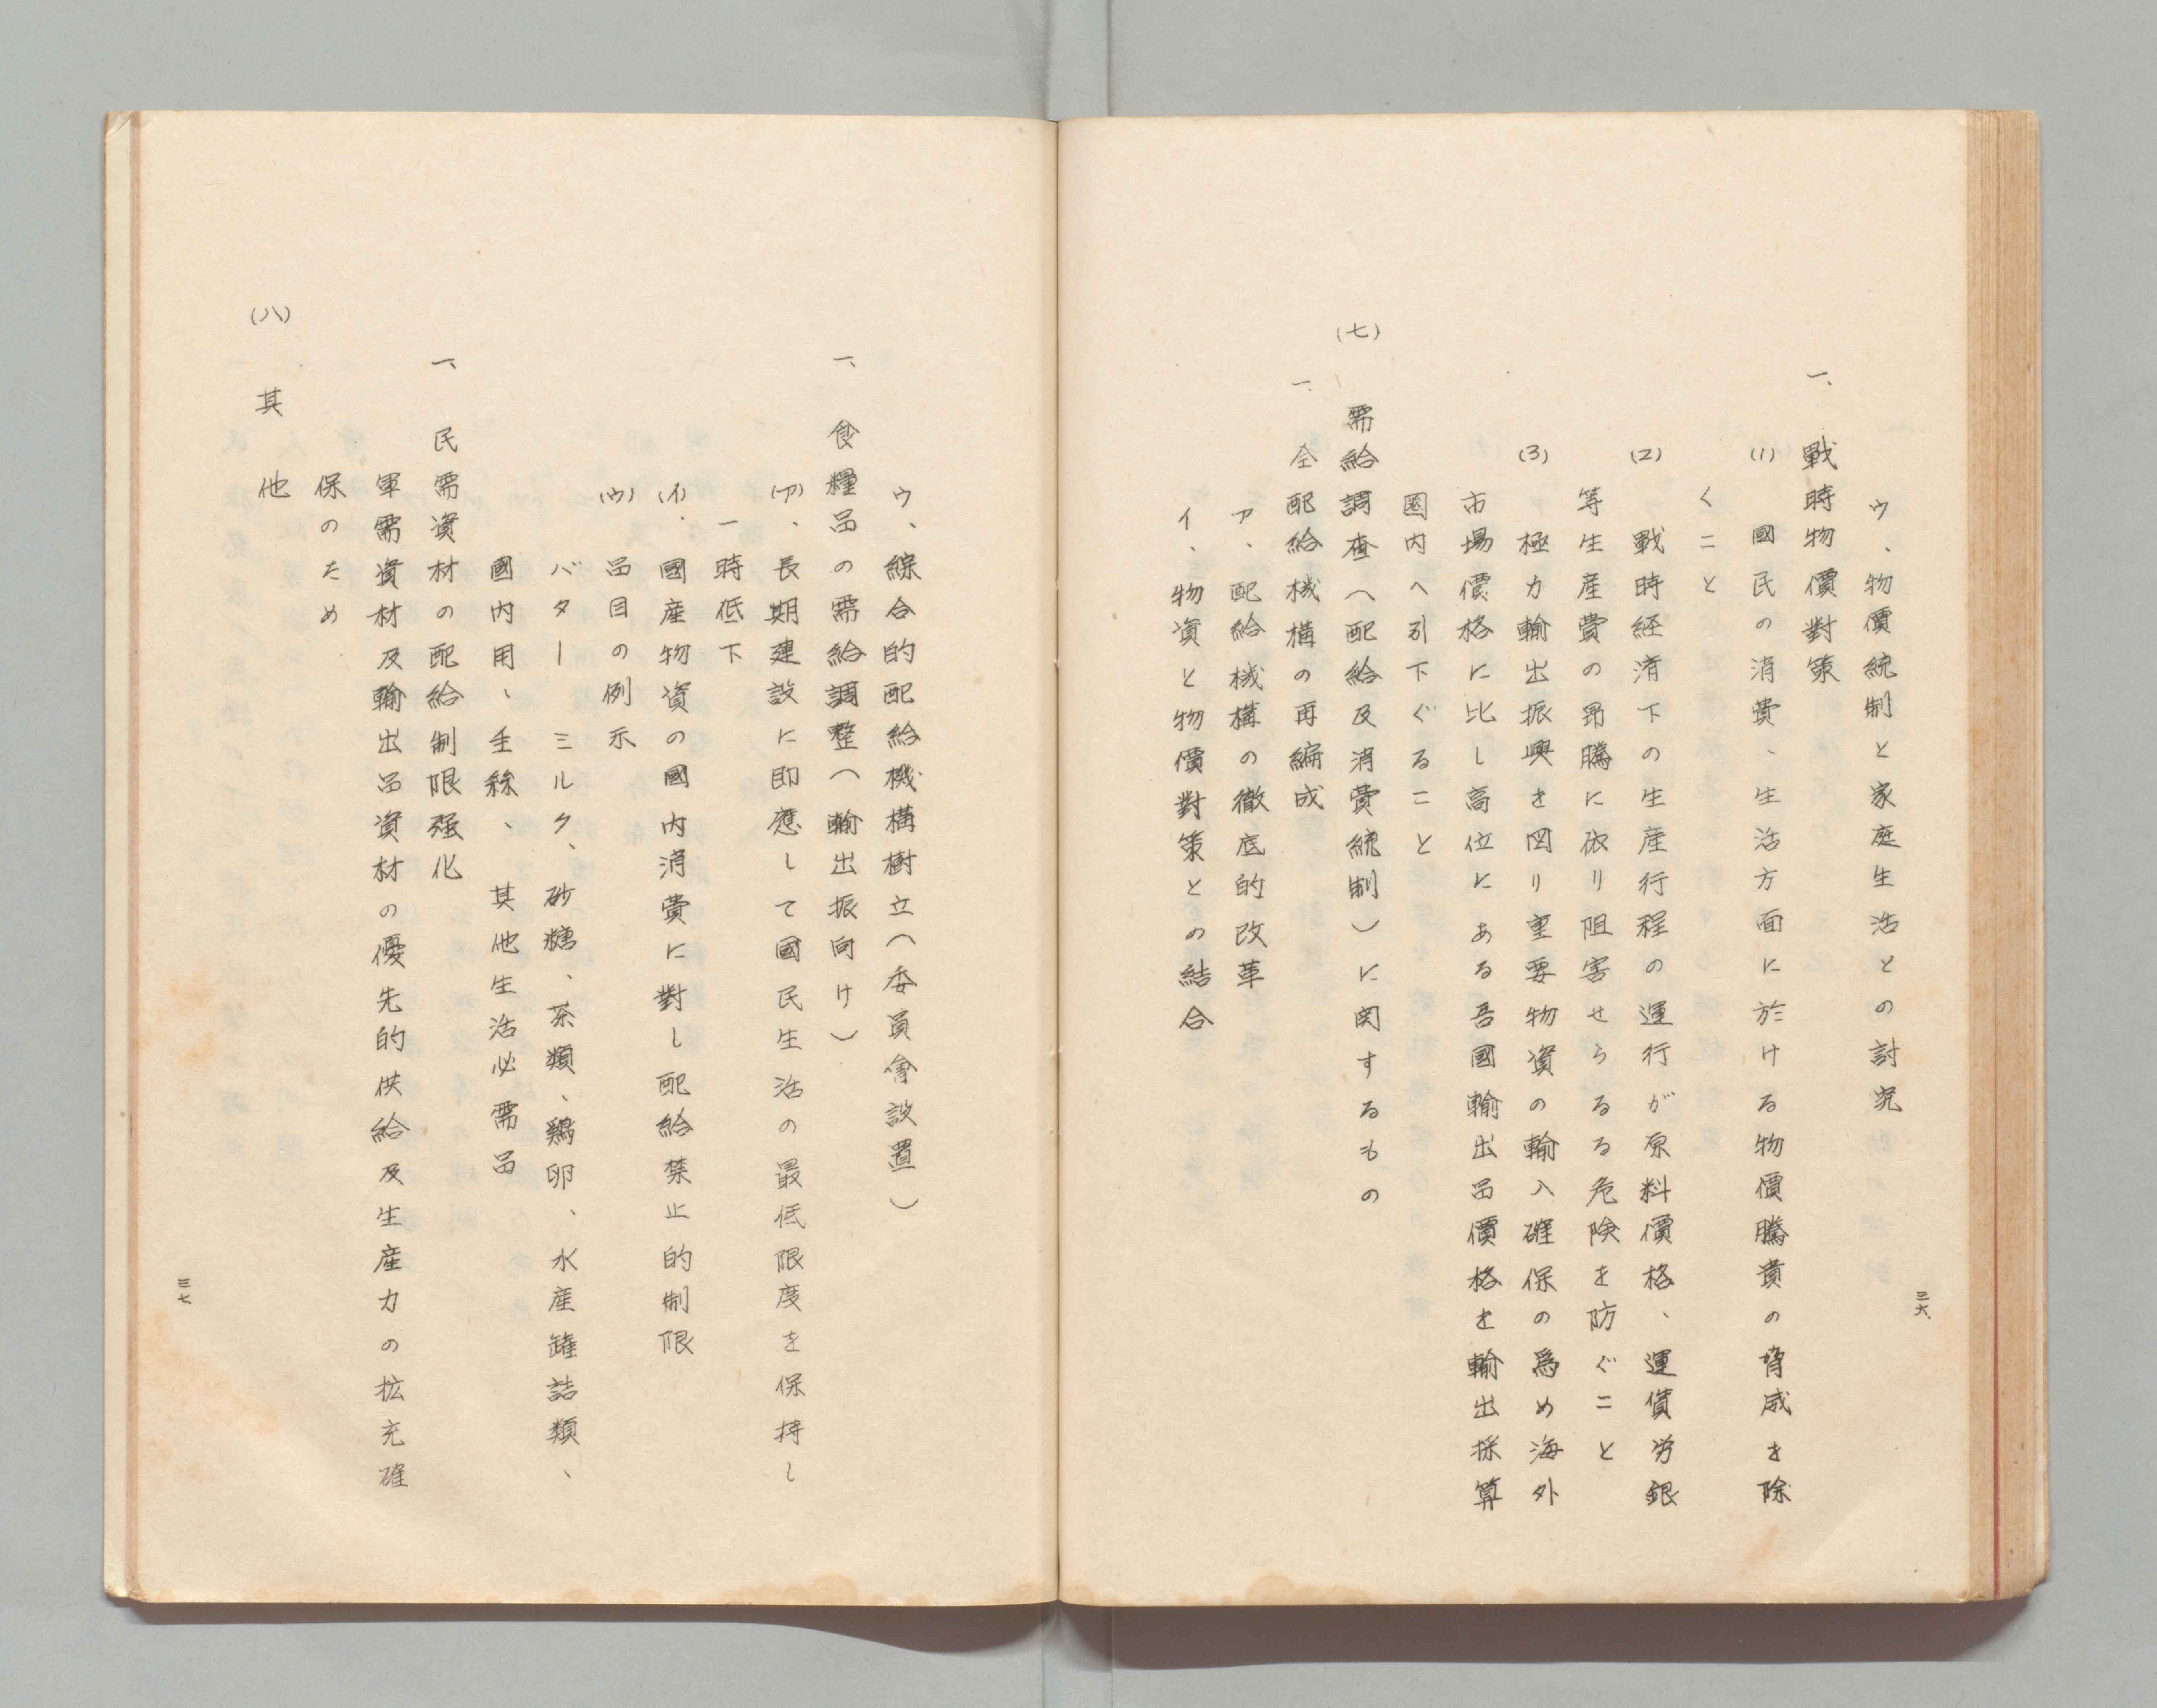 ウ、物價統制と家庭生活との討究
一、戰時物價對策
(1) 國民の消費、生活方面に於ける物價騰貴の脅威を除
くこと
(2) 戰時経済下の生産行程の運行が原料價格、運賃労銀
等生産費の昻騰に依り阻害せらるる危険を防ぐこと
(3) 極力輸出振興を図り重要物資の輸入確保の爲め海外
市場價格に比し高位にある吾國輸出品價格を輸出採算
圏内へ引下ぐること
(七) 需給調査(配給及消費統制)に関するもの
一、全配給機構の再編成
ア、配給機構の徹底的改革
イ、物資と物價對策との結合
三六
ウ、綜合的配給機構樹立(委員會設置)
一、食糧品の需給調整(輸出振向け)
(ア)、長期建設に即應して國民生活の最低限度を保持し
一時低下
(イ)、國産物資の國内消費に對し配給禁止的制限
(ウ) 品目の例示
バター、ミルク、砂糖、茶類、鶏卵、水産罐詰類、
國内用、生絲、其他生活必需品
一、民需資材の配給制限强化
軍需資材及輸出品資材の優先的供給及生産力の拡充確
保のため
(八) 其他
三七